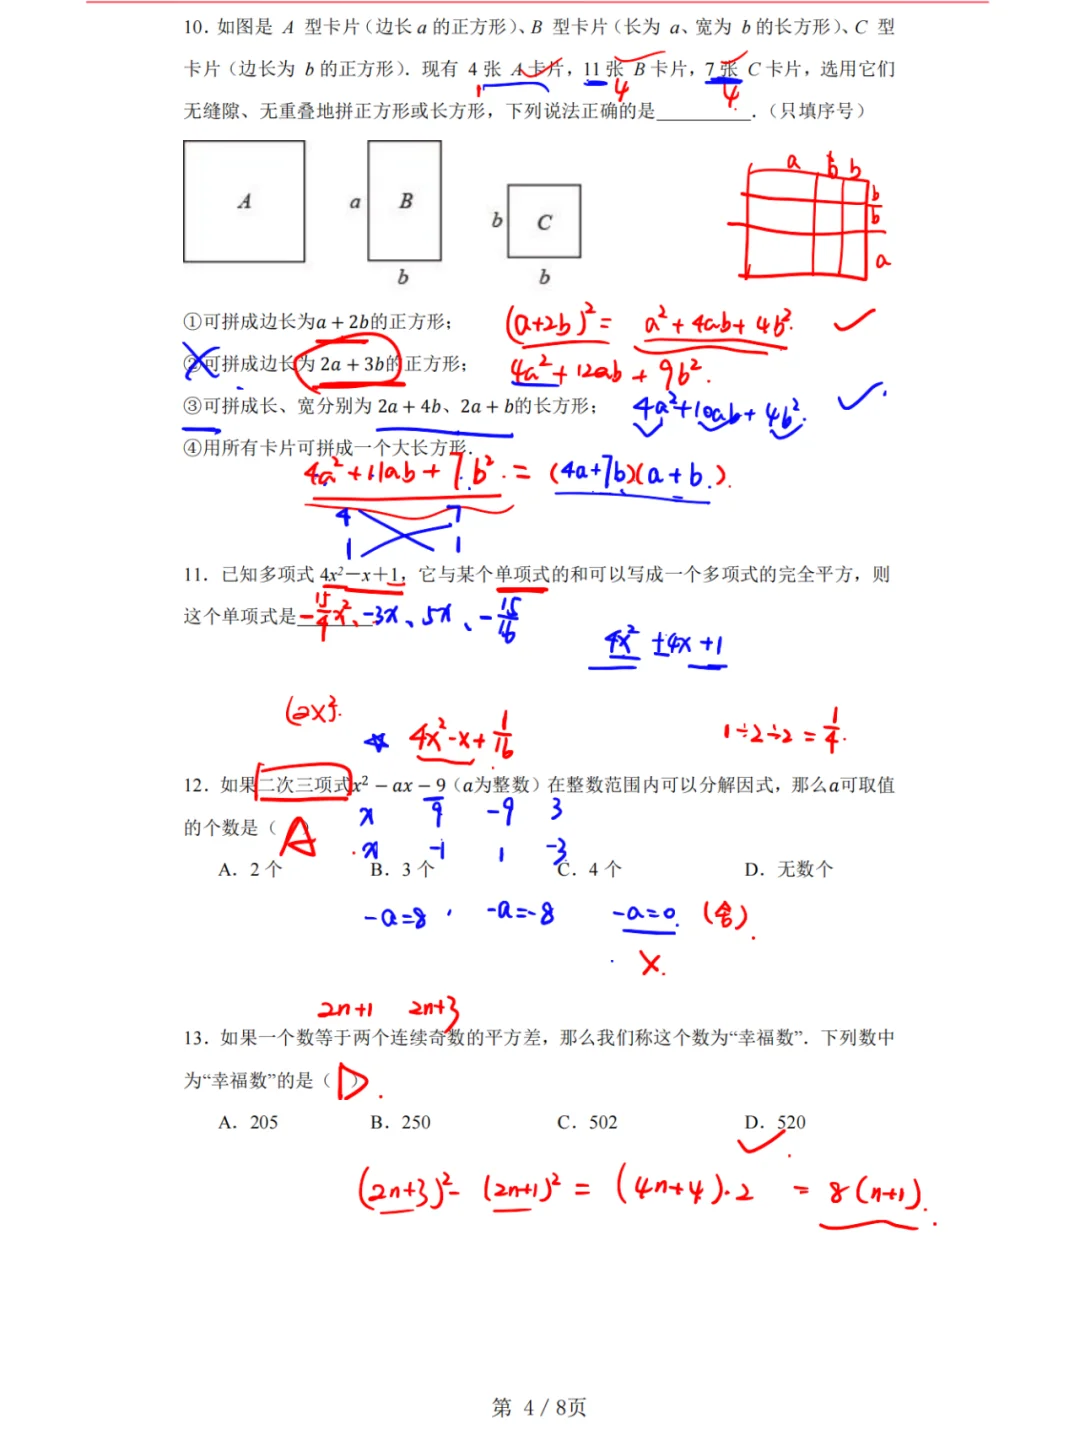 10．如图是 A 型卡片（边长 a 的正方形）、B 型卡片（长为 a、宽为 b 的长方形）、C 型
卡片（边长为 b 的正方形）．现有 4 张 A 卡片，11 张 B 卡片，7 张 C 卡片，选用它们
1 4 4
无缝隙、无重叠地拼正方形或长方形，下列说法正确的是__________．（只填序号）
A a B b b C b
a b b b b a
①可拼成边长为a + 2b的正方形；
(a+2b)² = a²+4ab+4b². ✓
②可拼成边长为 2a + 3b的正方形；
4a²+12ab+9b².
③可拼成长、宽分别为 2a + 4b、2a + b的长方形；
4a²+10ab+4b². ✓
④用所有卡片可拼成一个大长方形．
4a²+11ab+7b² = (4a+7b)(a+b).
4 7
1 1
11．已知多项式 4x²－x＋1，它与某个单项式的和可以写成一个多项式的完全平方，则
这个单项式是________
-15/4x²、-3x、5x、-15/16
4x² ±4x +1
(2x)².
4x²-x+1/16
1÷2÷2=1/4.
12．如果二次三项式x² − ax − 9（a为整数）在整数范围内可以分解因式，那么a可取值
x 9 -9 3
的个数是（ A ）
x -1 1 -3
A．2 个 B．3 个 C．4 个 D．无数个
-a=8， -a=-8 -a=0. (舍).
X.
2n+1 2n+3
13．如果一个数等于两个连续奇数的平方差，那么我们称这个数为“幸福数”．下列数中
为“幸福数”的是（ D ）
A．205 B．250 C．502 D．520
✓
(2n+3)²-(2n+1)² = (4n+4)·2 = 8(n+1).
第 4 / 8页